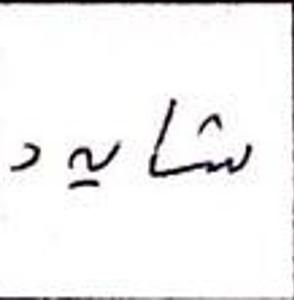 شاید